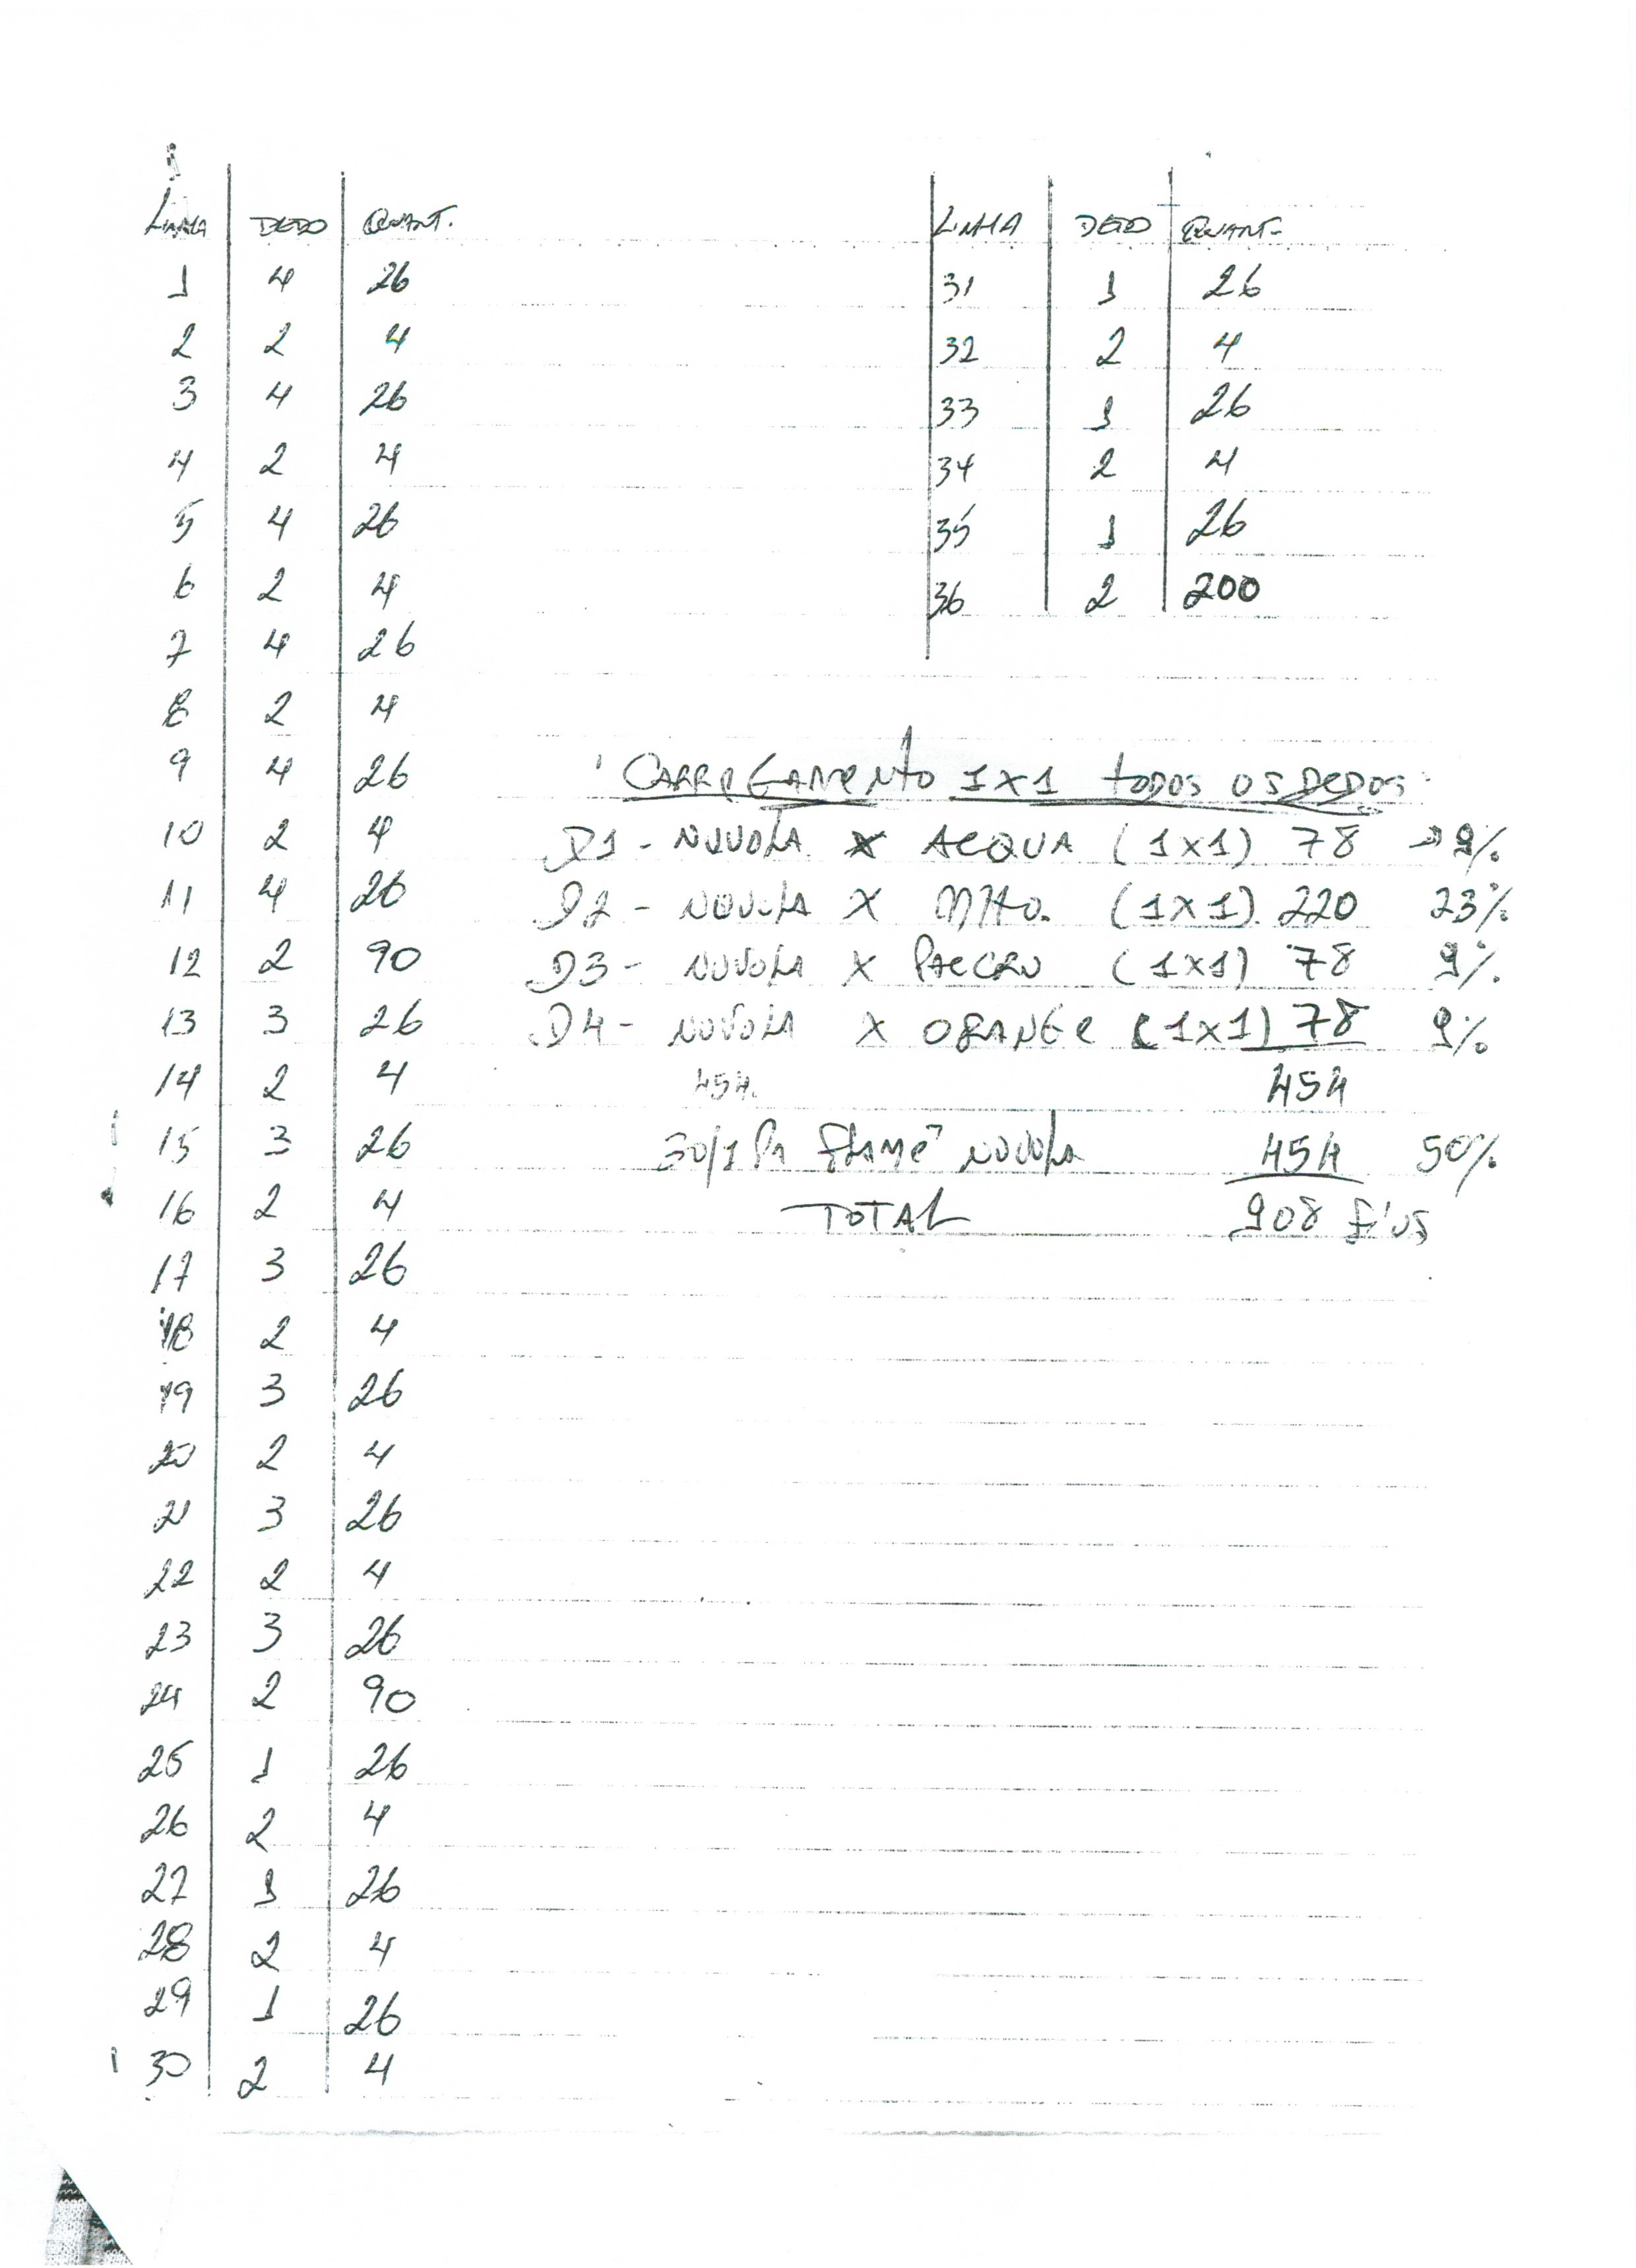 LINHA DEDO QUANT.
1 4 26
2 2 4
3 4 26
4 2 4
5 4 26
6 2 4
7 4 26
8 2 4
9 4 26
10 2 4
11 4 26
12 2 90
13 3 26
14 2 4
15 3 26
16 2 4
17 3 26
18 2 4
19 3 26
20 2 4
21 3 26
22 2 4
23 3 26
24 2 90
25 1 26
26 2 4
27 1 26
28 2 4
29 1 26
30 2 4
LINHA DEDO QUANT-
31 1 26
32 2 4
33 1 26
34 2 4
35 1 26
36 2 200
CARREGAMENTO 1X1 TODOS OS DEDOS
D1 - NUVOLA X ACQUA (1X1) 78 → 9%
D2 - NUVOLA X (1X1) 220 23%
D3 - NUVOLA X (1X1) 78 9%
D4 - NUVOLA X ORANGE (1X1) 78 9%
454. 454
30/1 FLAMÊ NUVOLA 454 50%
TOTAL 908 FIOS